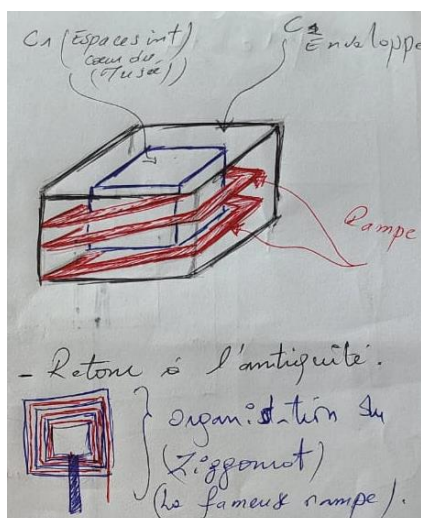 C1 (Espaces int)
cœur du
(Musée))
C2
Enveloppe
Rampe
- Retour à l'antiquité.
organisation du
(Ziggourat)
(La fameuse rampe).